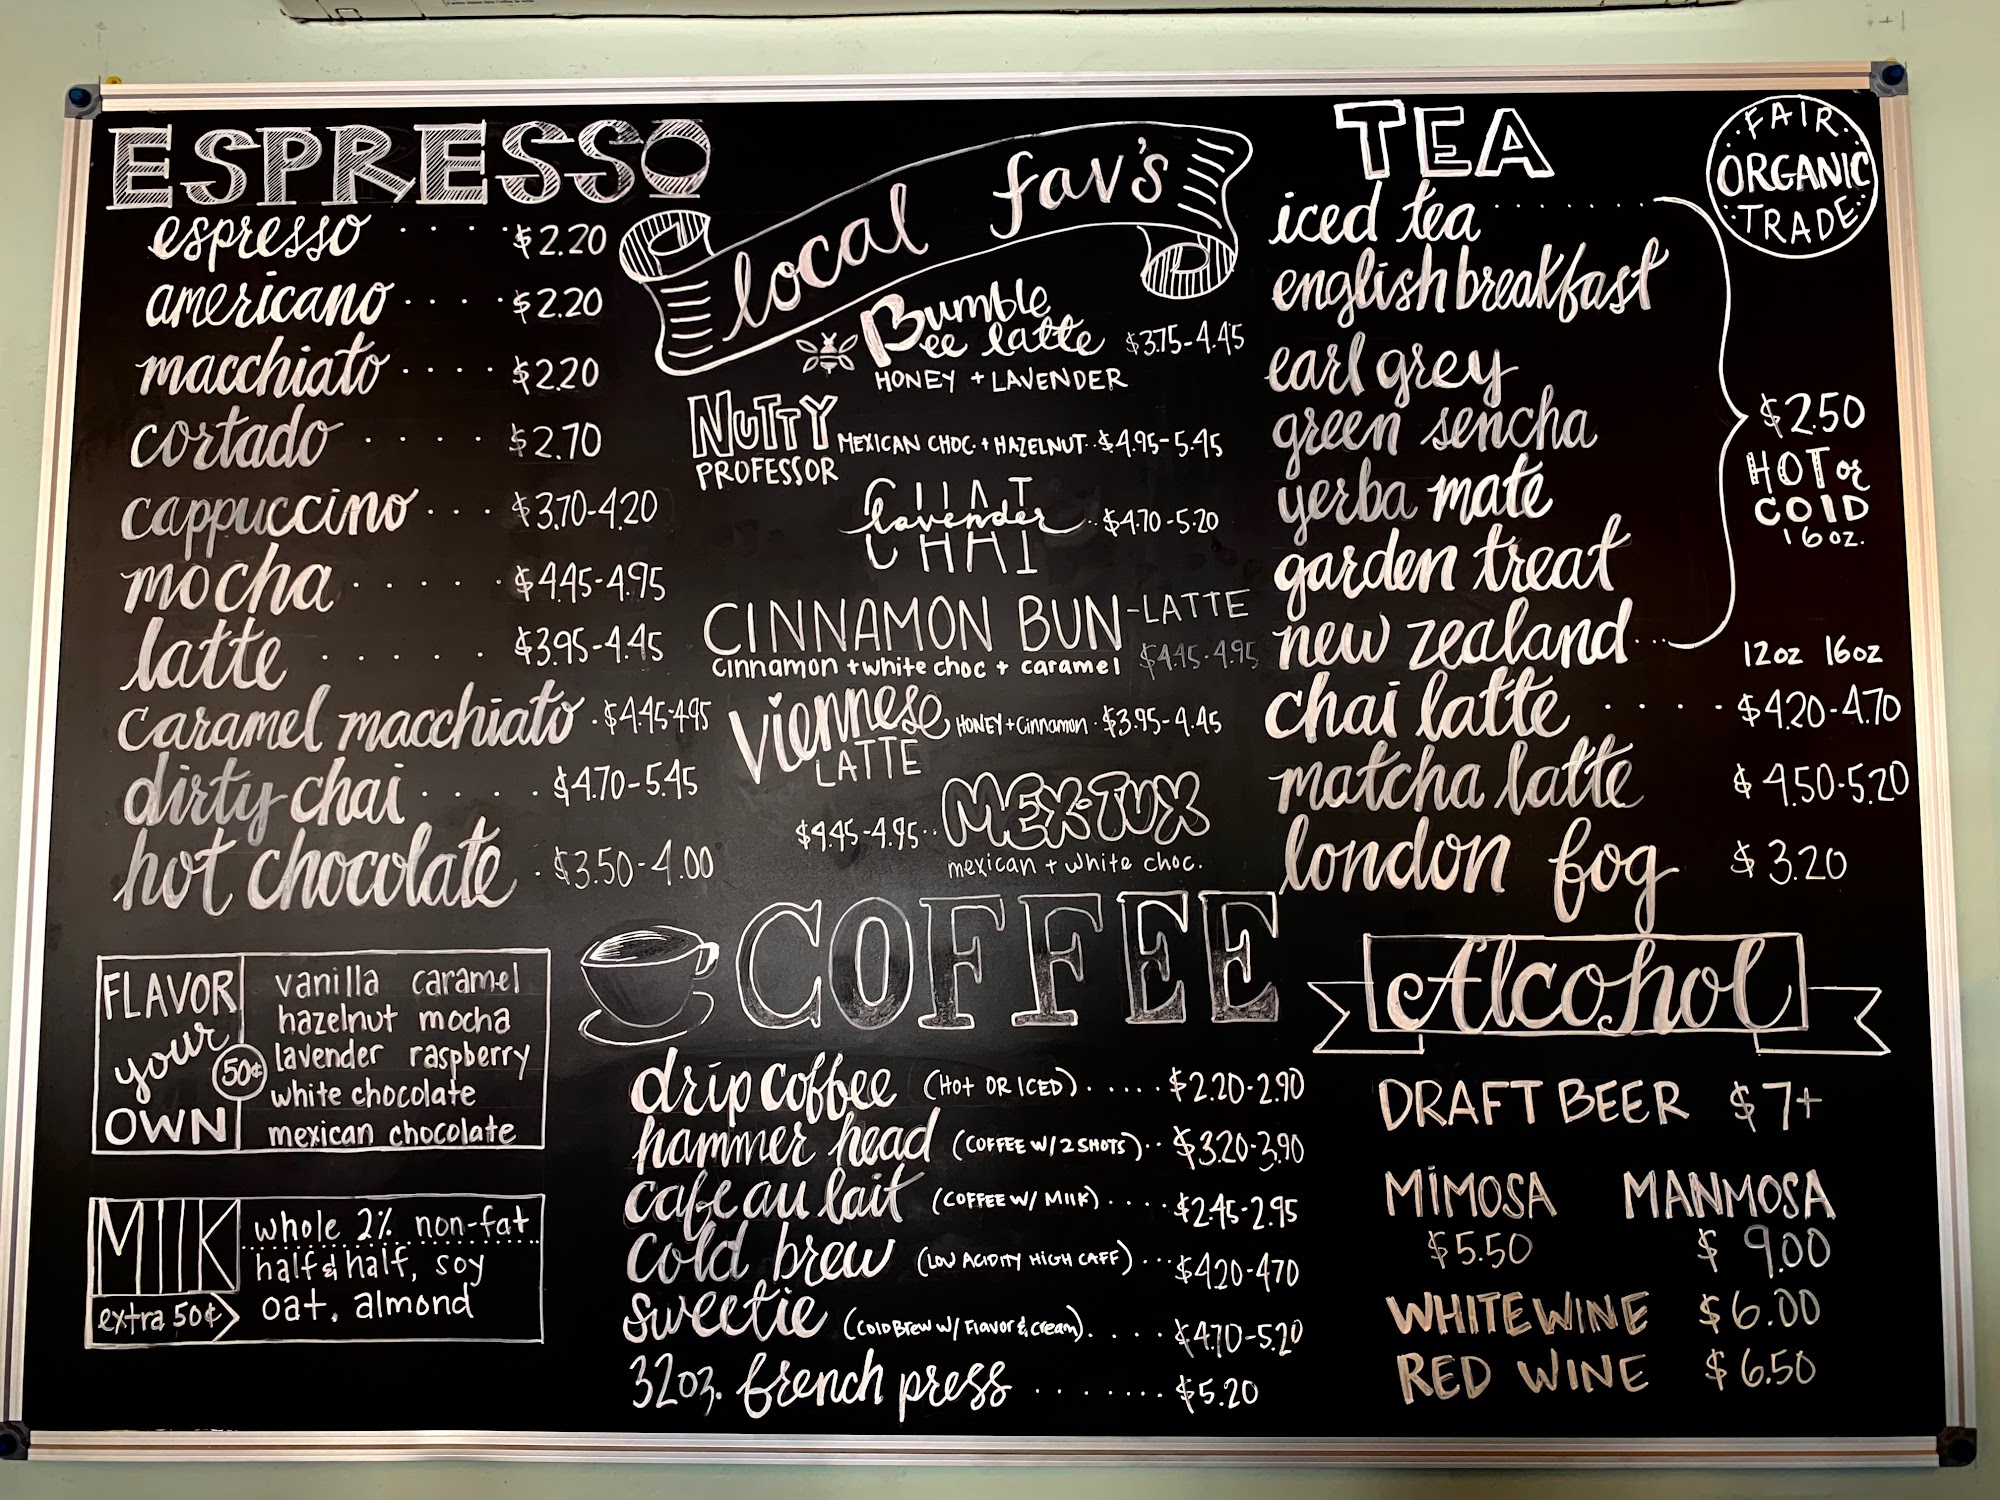 ESPRESSO
espresso .... $2.20
americano .... $2.20
macchiato .... $2.20
cortado .... $2.70
cappuccino ... $3.70-4.20
mocha ..... $4.45-4.95
latte ..... $3.95-4.45
caramel macchiato . $4.45-4.95
dirty chai .... $4.70-5.45
hot chocolate . $3.50-4.00
FLAVOR your OWN 50¢
vanilla caramel
hazelnut mocha
lavender raspberry
white chocolate
mexican chocolate
MILK
extra 50¢
whole 2% non-fat
half & half, soy
oat, almond
local fav's
Bumble
ee latte $3.75-4.45
HONEY + LAVENDER
NUTTY
PROFESSOR MEXICAN CHOC. + HAZELNUT .. $4.95-5.45
lavender .. $4.70-5.20
CHAI
CINNAMON BUN-LATTE
cinnamon + white choc + caramel $4.45-4.95
Viennese HONEY + Cinnamon . $3.95-4.45
LATTE
$4.45-4.95 .. MEX-TUX
mexican + white choc.
COFFEE
drip coffee (HOT OR ICED) ..... $2.20-2.90
hammer head (COFFEE W/ 2 SHOTS) .. $3.20-3.90
cafe au lait (COFFEE W/ MILK) .... $2.45-2.95
cold brew (LOW ACIDITY HIGH CAFF) ... $4.20-4.70
sweetie (Cold Brew w/ Flavor & Cream) .... $4.70-5.20
32oz. french press ....... $5.20
TEA
iced tea .......
english breakfast
earl grey
green sencha
yerba mate
garden treat
new zealand ...
$2.50
HOT or
COLD
16 oz.
12oz 16oz
chai latte ..... $4.20-4.70
matcha latte $4.50-5.20
london fog $3.20
FAIR
ORGANIC
TRADE
Alcohol
DRAFT BEER $7+
MIMOSA MANMOSA
$5.50 $9.00
WHITE WINE $6.00
RED WINE $6.50